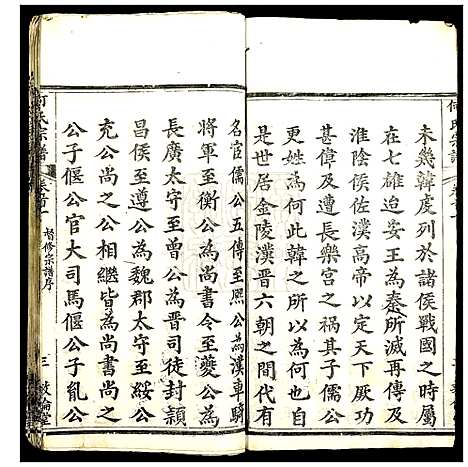 何氏宗譜
未幾韓虔列於諸侯戰國之時屬
在七雄迨安王為秦所滅再傳及
淮陰侯佐漢高帝以武定天下厥功
甚偉及遭長樂宮之禍其子儒公
更姓為何此韓之所以為何也自
是世居金陵漢晉六朝之間代有
名官儒公五傳至熙公為漢車騎
將軍至衡公為尚書令至夔公為
長廣太守至曾公為晉司徒封頴
昌侯至遵公為魏郡太守至綏公
充公尚之公相繼皆為尚書尚之
公子偃公官大司馬偃公子胤公
何氏宗譜
卷首一
督修宗譜序
三
敦倫堂